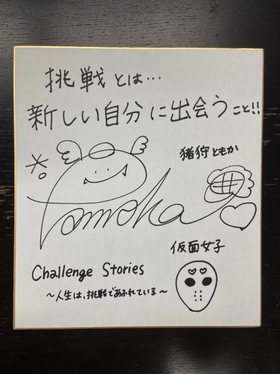 挑戦とは…
新しい自分に出会うこと!!
猪狩ともか
Tomoka
仮面女子
Challenge Stories
~人生は、挑戦であふれている~